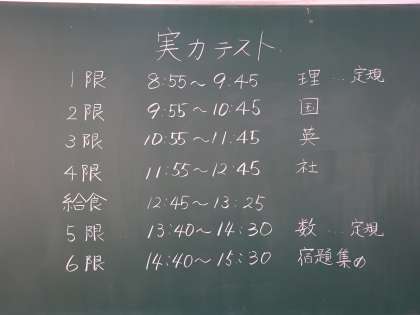 実力テスト
1限 8:55~9.45 理 … 定規
2限 9:55~10:45 国
3限 10:55~11.45 英
4限 11:55~12:45 社
給食 12:45~13:25
5限 13:40~14:30 数 … 定規
6限 14:40~15:30 宿題集め